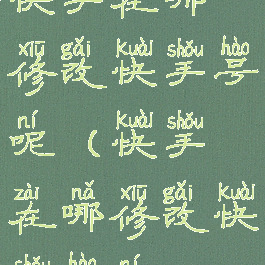 快手在哪
xiū gǎi kuài shǒu hào
修改快手号
ní kuài shǒu
呢（快手
zài nǎ xiū gǎi kuài
在哪修改快
shǒu hào ní